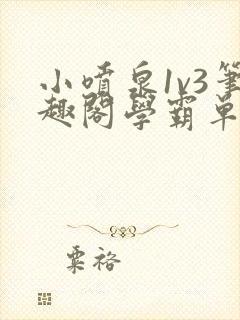 小噴泉1v3筆
趣閣學霸單
粟裕